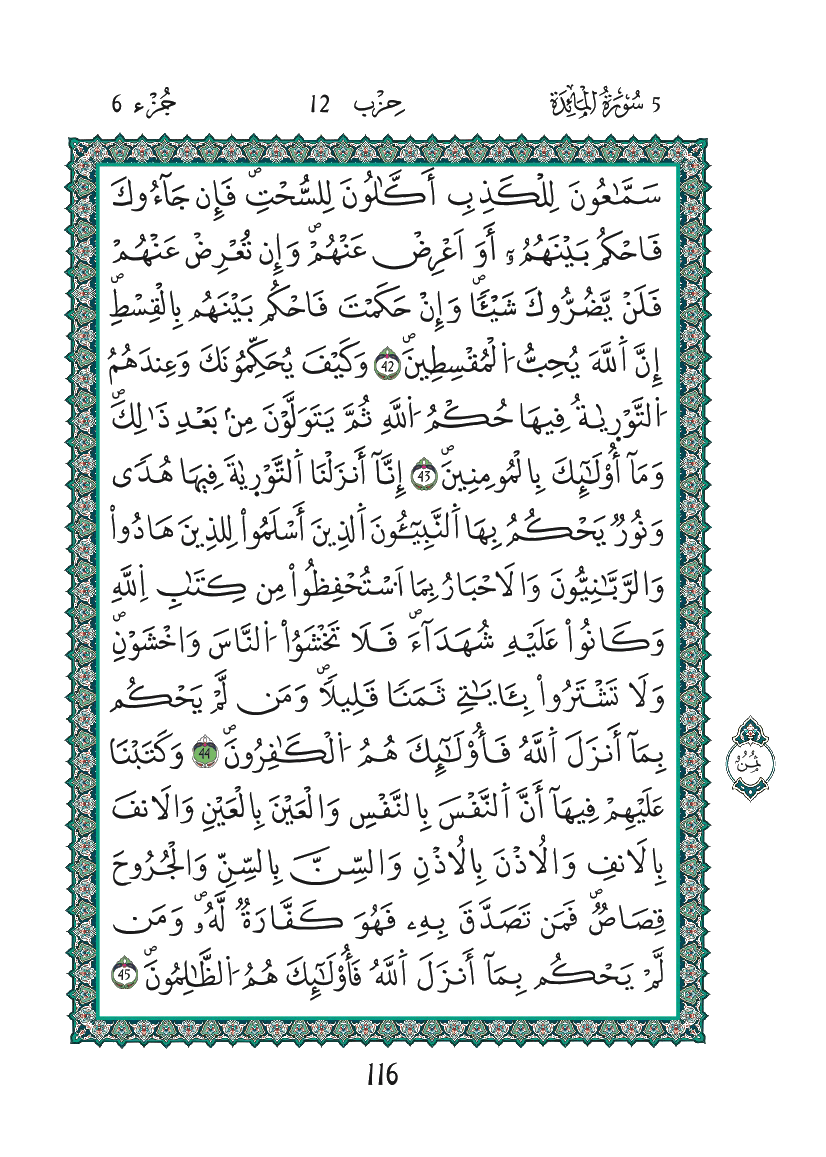 5 سُورَةُ الْمَائِدَة
حِزْب 12
جُزْء 6
سَمَّٰعُونَ لِلْكَذِبِ أَكَّٰلُونَ لِلسُّحْتِۖ فَإِن جَآءُوكَ
فَاحْكُم بَيْنَهُمُۥٓ أَوَ اَعْرِضْ عَنْهُمْۖ وَإِن تُعْرِضْ عَنْهُمْ
فَلَنْ يَّضُرُّوكَ شَيْـٔاۖ وَإِنْ حَكَمْتَ فَاحْكُم بَيْنَهُم بِالْقِسْطِۖ
إِنَّ اَ۬للَّهَ يُحِبُّ اُ۬لْمُقْسِطِينَۖ 42 وَكَيْفَ يُحَكِّمُونَكَ وَعِندَهُمُ
اُ۬لتَّوْر۪يٰةُ فِيهَا حُكْمُ اُ۬للَّهِ ثُمَّ يَتَوَلَّوْنَ مِنۢ بَعْدِ ذَٰلِكَۖ
وَمَآ أُوْلَٰٓئِكَ بِالْمُومِنِينَۖ 43 إِنَّآ أَنزَلْنَا اَ۬لتَّوْر۪يٰةَ فِيهَا هُدىً
وَنُورٌۖ يَحْكُمُ بِهَا اَ۬لنَّبِيٓـُٔونَ اَ۬لذِينَ أَسْلَمُواْ لِلذِينَ هَادُواْ
وَالرَّبَّٰنِيُّونَ وَالَاحْبَارُ بِمَا اَ۟سْتُحْفِظُواْ مِن كِتَٰبِ اِ۬للَّهِ
وَكَانُواْ عَلَيْهِ شُهَدَآءَۖ فَلَا تَخْشَوُاْ اُ۬لنَّاسَ وَاخْشَوْنِۖ
وَلَا تَشْتَرُواْ بِـَٔايَٰتِے ثَمَناٗ قَلِيلاٗۖ وَمَن لَّمْ يَحْكُم
بِمَآ أَنزَلَ اَ۬للَّهُ فَأُوْلَٰٓئِكَ هُمُ اُ۬لْكَٰفِرُونَۖ 44 وَكَتَبْنَا
عَلَيْهِمْ فِيهَآ أَنَّ اَ۬لنَّفْسَ بِالنَّفْسِ وَالْعَيْنَ بِالْعَيْنِ وَالَانفَ
بِالَانفِ وَالُاذْنَ بِالُاذْنِ وَالسِّنَّ بِالسِّنِّ وَالْجُرُوحَ
قِصَاصٞۖ فَمَن تَصَدَّقَ بِهِۦ فَهُوَ كَفَّارَةٞ لَّهُۥۖ وَمَن
لَّمْ يَحْكُم بِمَآ أَنزَلَ اَ۬للَّهُ فَأُوْلَٰٓئِكَ هُمُ اُ۬لظَّٰلِمُونَۖ 45
ثُمُنٌ
116